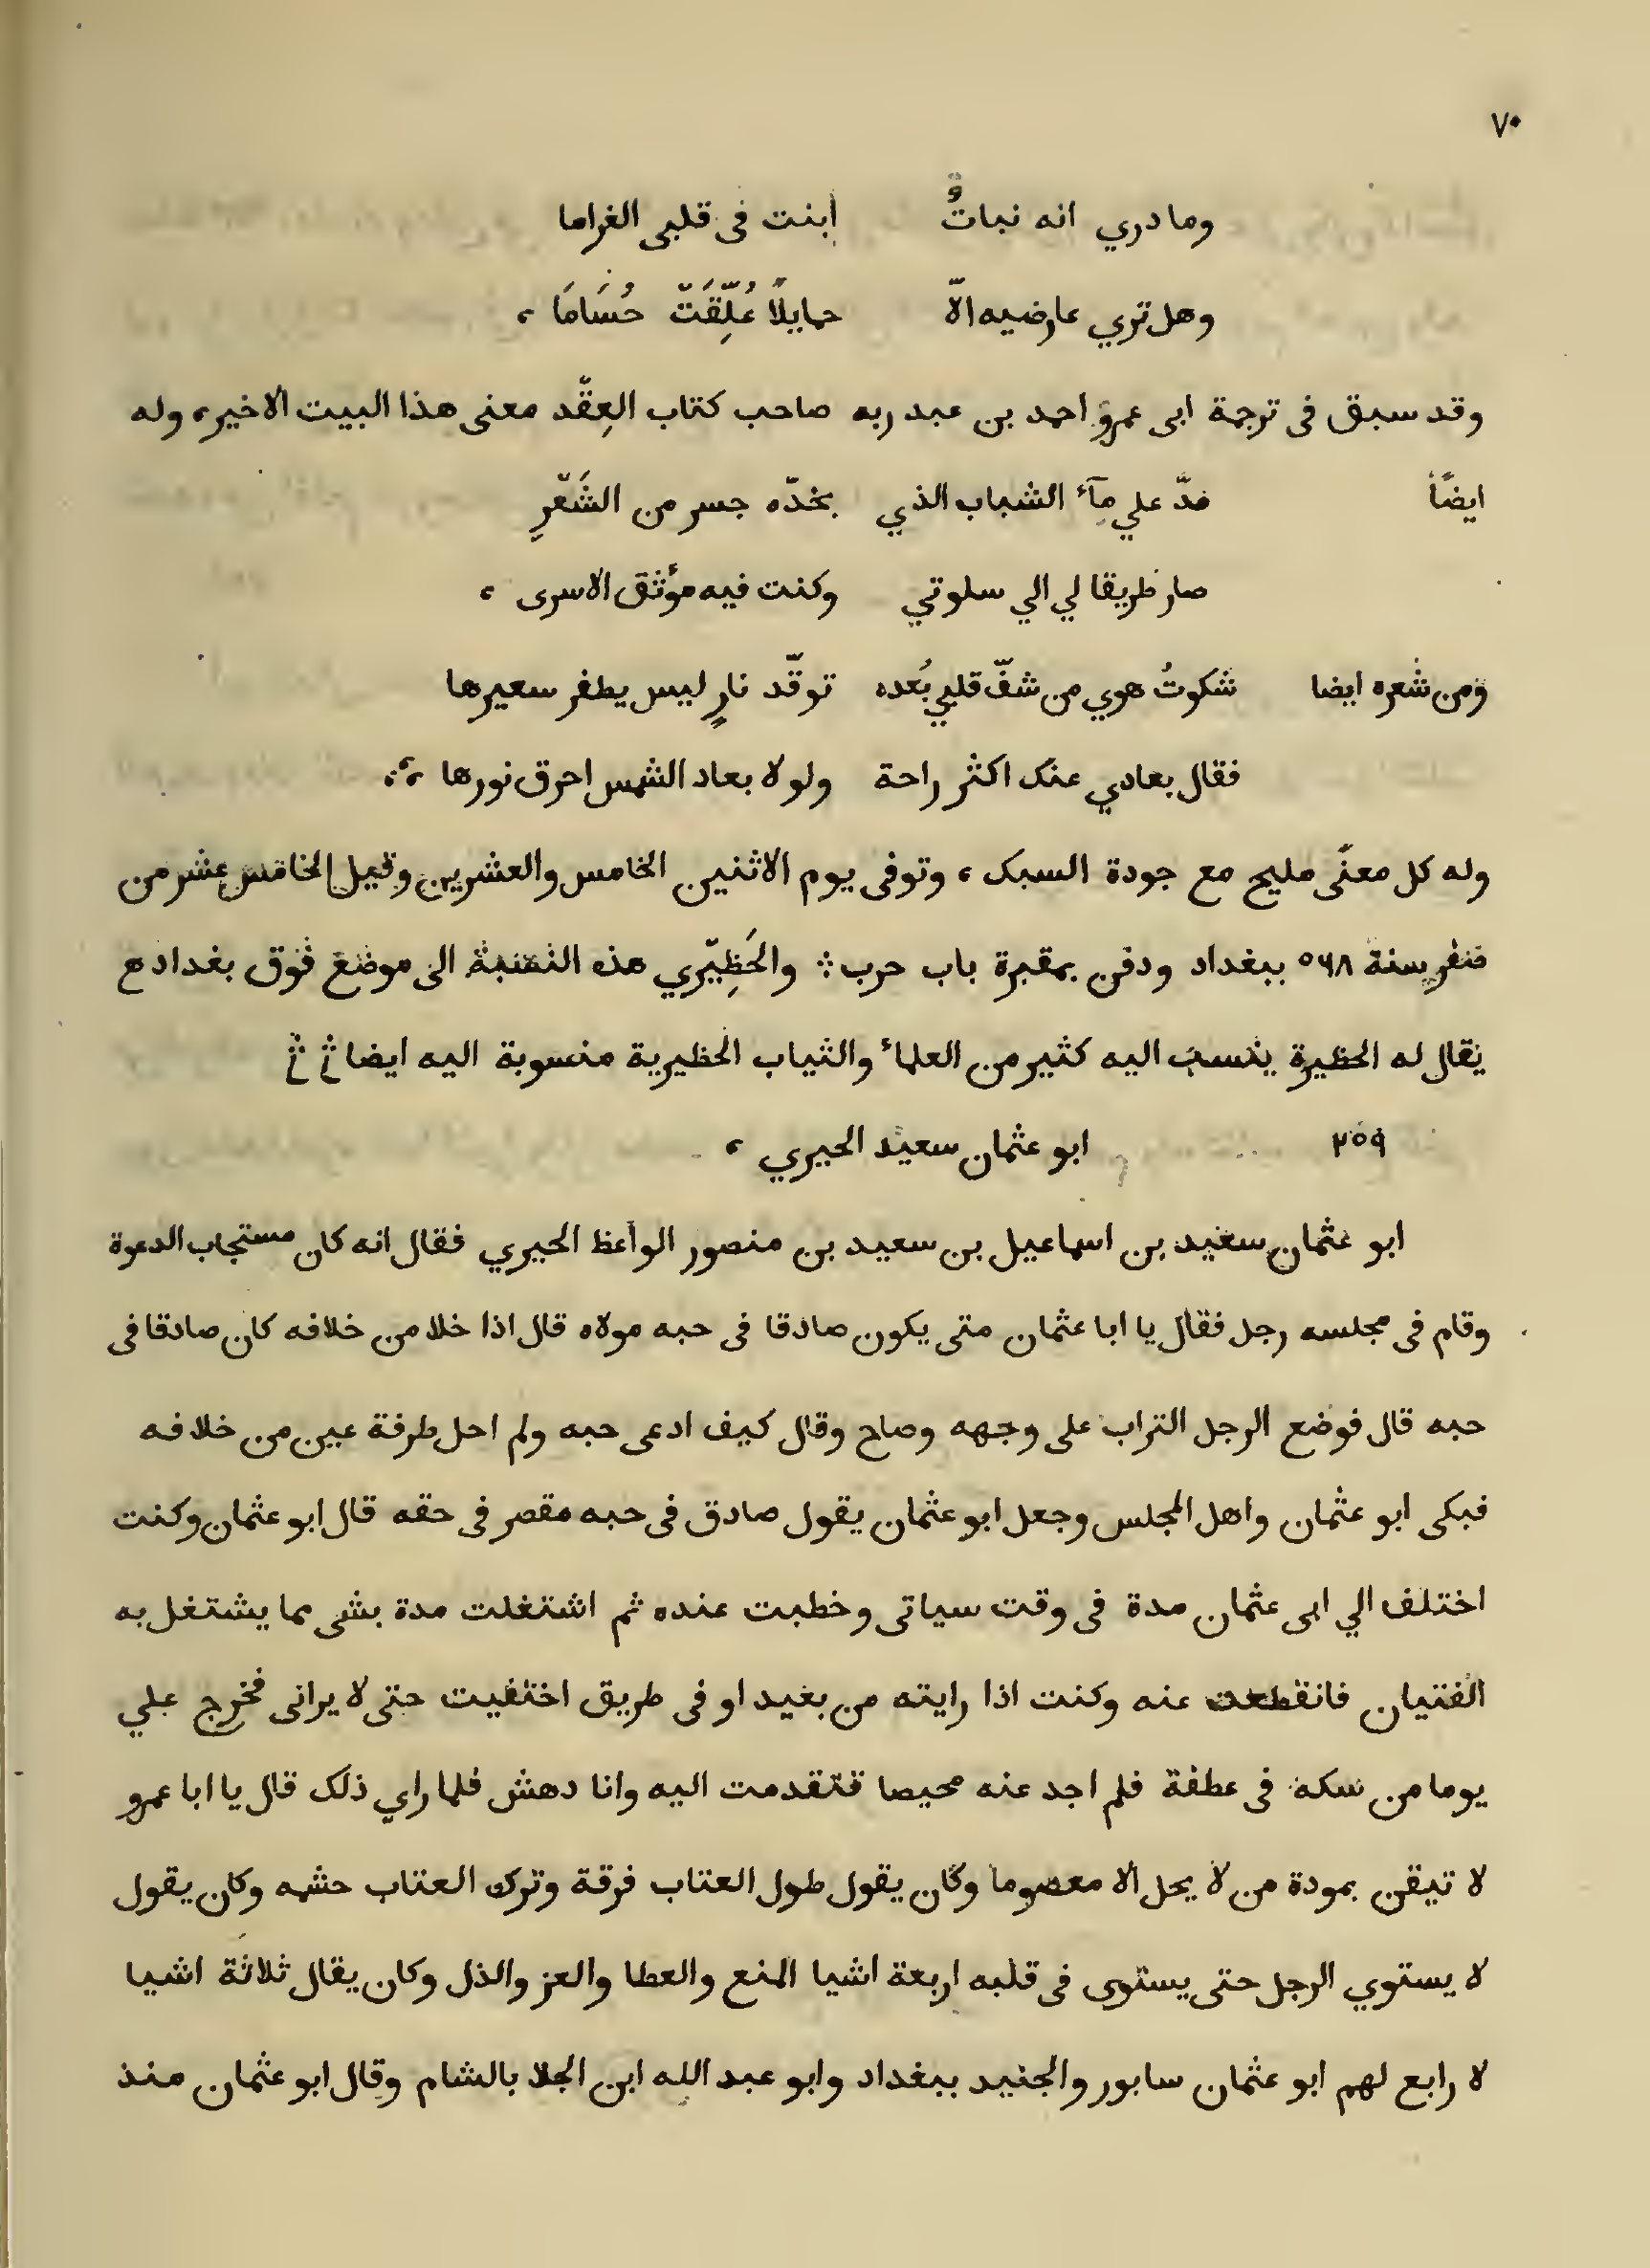 ٧٠
وما دري انه نباتُ ابنت فى قلبى الغراما
وهل تري عارضيه الّا حمايلاً عُلِّقَتّ حُسَامَا ،
وقد سبق فى ترجمة ابى عمرو احمد بن عبد ربه صاحب كتاب العِقّد معنى هذا البيت الاخير، وله
ايضًا مدّ علي مآء الشباب الذي بخدّه جسر من الشَعّرِ
صار طريقا لي الي سلوتي وكنت فيه موثق الاسرى ،
ومن شعره ايضا شكوتُ هوي من شفّ قلبي بُعده توقّد نارٍ ليس يطفر سعيرها
فقال بعادي عنك اكثر راحة ولولا بعاد الشمس احرق نورها ،
وله كل معنًى مليح مع جودة السبك ، وتوفى يوم الاثنين الخامس والعشرين وقيل الخامس عشر من
صفر سنة ٥٦٨ ببغداد ودفن بمقبرة باب حرب ؛ والحَظِيّري هذه النسبة الى موضع فوق بغداد ع
يقال له الحظيرة ينسب اليه كثير من العلماء والثياب الحظيرية منسوبة اليه ايضا
٢٥٩ ابو عثمان سعيد الحيري ،
ابو عثمان سعيد بن اسماعيل بن سعيد بن منصور الواعظ الحيري فقال انه كان مستجاب الدعوة
وقام فى مجلسه رجل فقال يا ابا عثمان متى يكون صادقا فى حبه مولاه قال اذا خلا من خلافه كان صادقا فى
حبه قال فوضع الرجل التراب على وجهه وصاح وقال كيف ادعى حبه ولم احل طرفة عين من خلافه
فبكى ابو عثمان واهل المجلس وجعل ابو عثمان يقول صادق فى حبه مقصر فى حقه قال ابو عثمان وكنت
اختلف الي ابى عثمان مدة فى وقت سياتى وخطبت عنده ثم اشتغلت مدة بشى مما يشتغل به
الفتيان فانقطعت عنه وكنت اذا رايته من بعيد او فى طريق اختفيت حتى لا يرانى فخرج علي
يوما من سكه فى عطفة فلم اجد عنه محيصا فتقدمت اليه وانا دهش فلما راي ذلك قال يا ابا عمرو
لا تيقن بمودة من لا يحل الا معصوما وكان يقول طول العتاب فرقة وترك العتاب حشمه وكان يقول
لا يستوي الرجل حتى يستوى فى قلبه اربعة اشيا المنع والعطا والعز والذل وكان يقال ثلاثة اشيا
لا رابع لهم ابو عثمان سابور والجنيد ببغداد وابو عبد الله ابن الجلا بالشام وقال ابو عثمان منذ